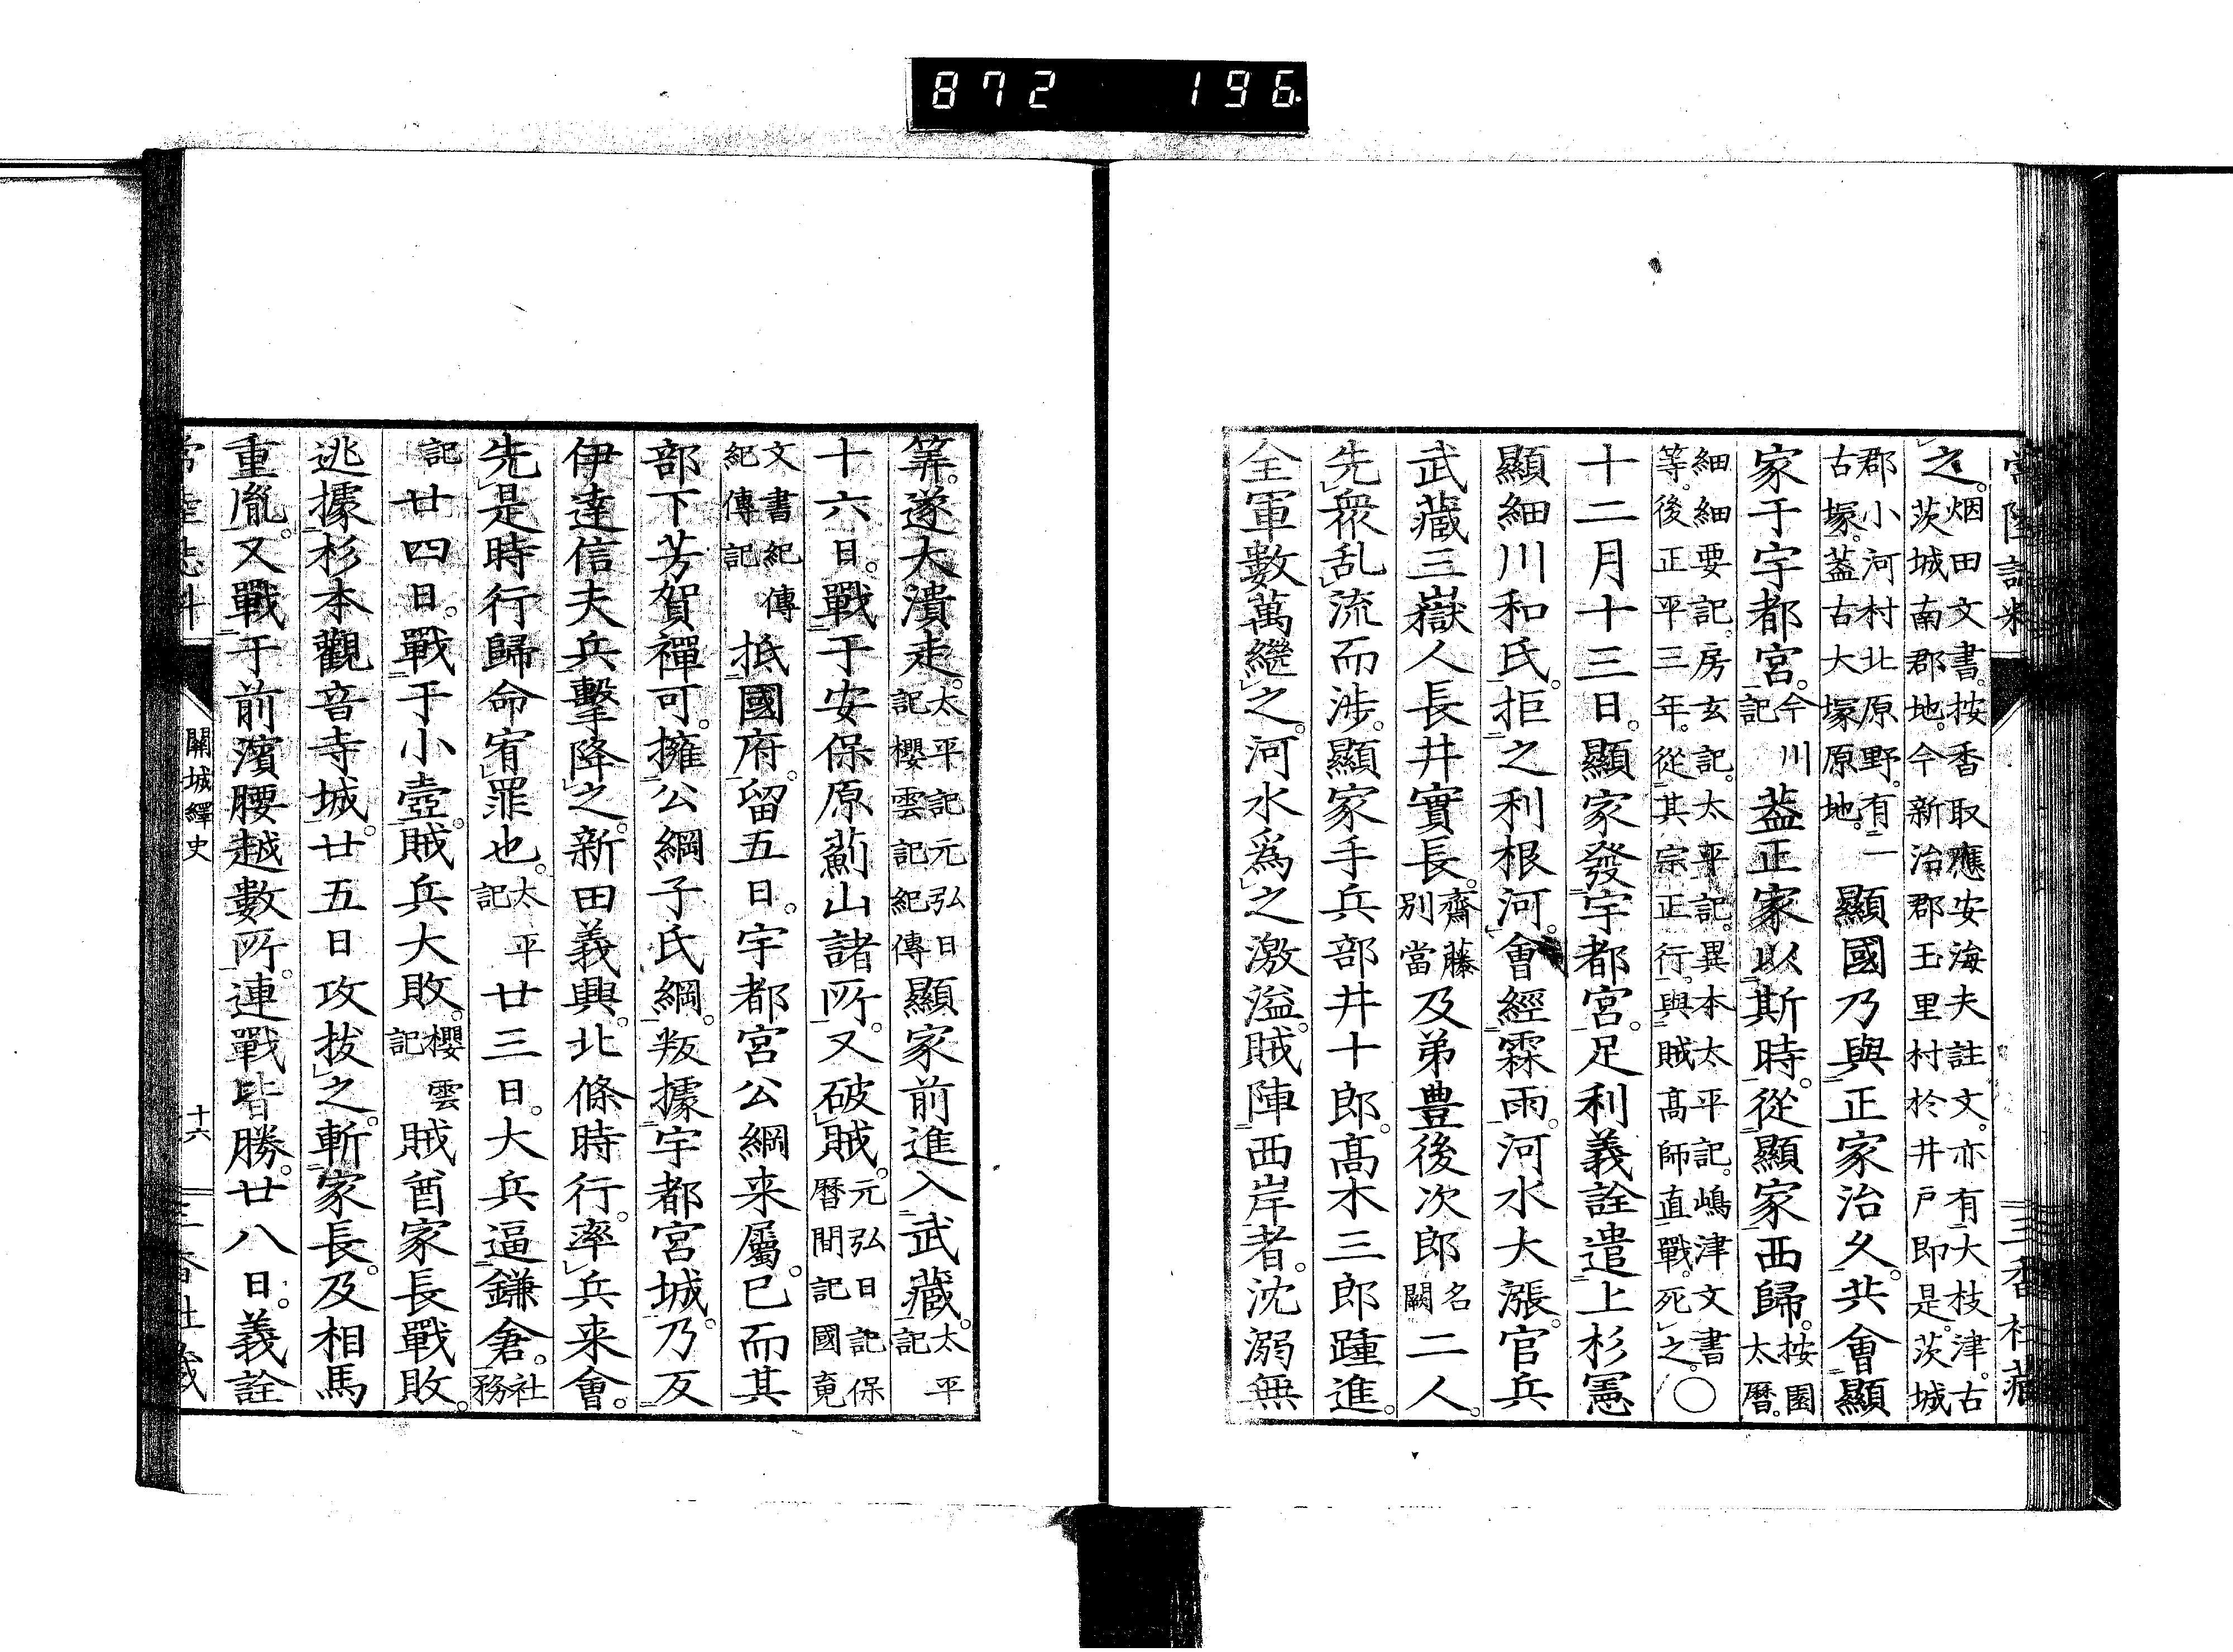 872 196
之。烟田文書。按香取應安海夫註文。亦有大枝津。古茨城南郡地。今新治郡玉里村於井戸即是。茨城
郡小河村北原野。有二古塚。蓋古大塚原地。顯國乃與正家治久。共會顯
家于宇都宮。今川記 蓋正家以斯時。從顯家西歸。按園太暦。
細細要記。房玄記。太平記。異本太平記。嶋津文書等。後正平三年。從其宗正行。與賊高師直戰。死之。○
十二月十三日。顯家發宇都宮。足利義詮遣上杉憲
顯細川和氏。拒之利根河。會經霖雨。河水大漲。官兵
武藏三嶽人長井實長。齋藤別當及弟豊後次郎名闕二人。
先衆乱流而涉。顯家手兵部井十郎。高木三郎踵進。
全軍數萬繼之。河水爲之激溢。賊陣西岸者。沈溺無
筭。遂大潰走。太平記元弘日記櫻雲記紀傳顯家前進入武藏。太平記
十六日。戰于安保原薊山諸所。又破賊。元弘日記保暦間記國竟
文書紀傳紀傳記 抵國府。留五日。宇都宮公綱来屬。已而其
部下芳賀禪可。擁公綱子氏綱。叛據宇都宮城。乃反
伊達信夫兵擊降之。新田義興。北條時行。率兵来會。
先是時行歸命宥罪也。太平記 廿三日。大兵逼鎌倉。社務
記 廿四日。戰于小壺。賊兵大敗。櫻雲記 賊酋家長戰敗。
逃據杉本觀音寺城。廿五日攻拔之。斬家長。及相馬
重胤。又戰于前濱腰越數所。連戰皆勝。廿八日。義詮
關城繹史 十六